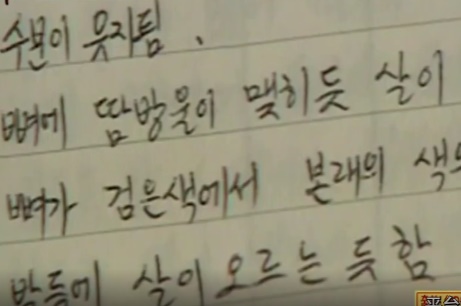 수분이 유지됨.
뼈에 땀방울이 맺히듯 살이
뼈가 검은색에서 본래의 색
발등에 살이 오르는 듯 함